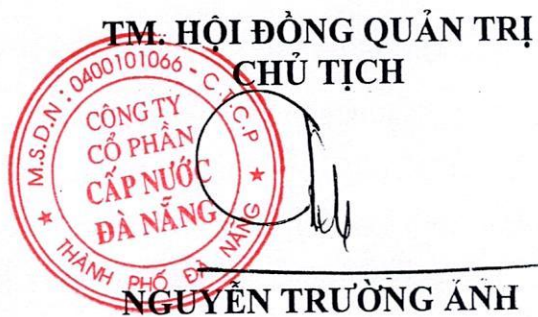 TM. HỘI ĐỒNG QUẢN TRỊ
CHỦ TỊCH
M.S.D.N: 0400101066 - C.T.C.P
CÔNG TY
CỔ PHẦN
CẤP NƯỚC
ĐÀ NẴNG
★ THÀNH PHỐ ĐÀ NẴNG ★
NGUYỄN TRƯỜNG ẢNH